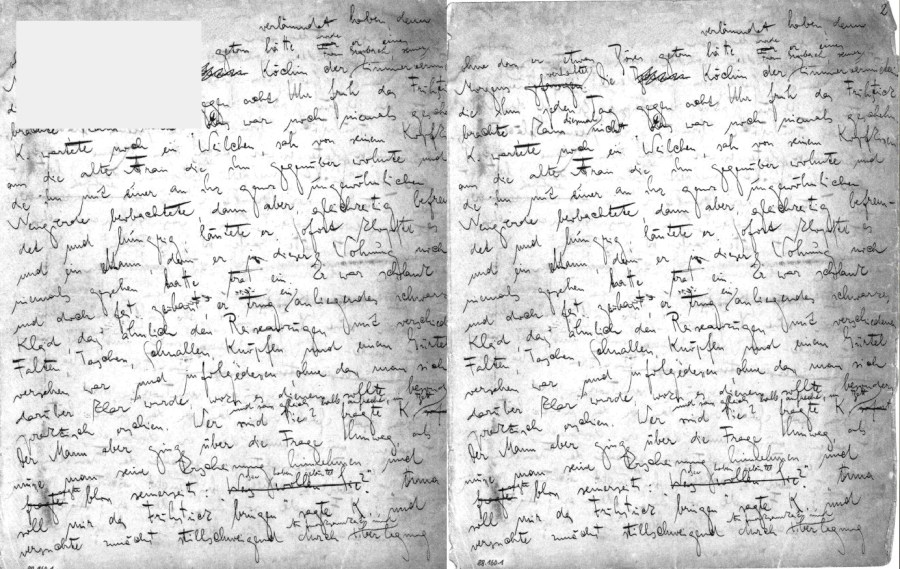 verläumdet haben denn
getan hätte,
Köchin der Zimmerverm
gegen acht Uhr früh das Frühstück
war noch niemals gesche
K. wartete noch ein Weilchen, sah von seinem Kopfkis
aus die alte Frau die ihm gegenüber wohnte und
die ihn mit einer an ihr ganz ungewöhnlichen
Neugierde beobachtete, dann aber, gleichzeitig befrem-
det und hungrig, läutete er. Sofort klopfte es
und ein Mann, den er in dieser Wohnung noch
niemals gesehen hatte trat ein. Er war schlank
und doch fest gebaut, er trug ein anliegendes schwarzes
Kleid, das ähnlich den Reiseanzügen mit verschiedenen
Falten, Taschen, Schnallen, Knöpfen und einem Gürtel
versehen war und infolgedessen ohne dass man sich
darüber klar wurde, wozu es dienen sollte, besonders
praktisch erschien. Wer sind Sie? fragte K.
Der Mann aber ging über die Frage hinweg, als
müsse man seine Erscheinung hinnehmen und
bloss seinerseits: Anna
soll mir das Frühstück bringen sagte K. und
versuchte zunächst stillschweigend durch Überlegung
2
verläumdet haben denn
ohne dass er etwas Böses getan hätte,
Morgens gefangen. Die Köchin der Zimmerverm
die ihm jeden Tag gegen acht Uhr früh das Frühstück
brachte kam diesmal nicht. Das war noch niemals gesche
K. wartete noch ein Weilchen, sah von seinem Kopfkis
aus die alte Frau die ihm gegenüber wohnte und
die ihn mit einer an ihr ganz ungewöhnlichen
Neugierde beobachtete, dann aber, gleichzeitig befrem-
det und hungrig, läutete er. Sofort klopfte es
und ein Mann, den er in dieser Wohnung noch
niemals gesehen hatte trat ein. Er war schlank
und doch fest gebaut, er trug ein anliegendes schwarzes
Kleid, das ähnlich den Reiseanzügen mit verschiedenen
Falten, Taschen, Schnallen, Knöpfen und einem Gürtel
versehen war und infolgedessen ohne dass man sich
darüber klar wurde, wozu es dienen sollte, besonders
praktisch erschien. Wer sind Sie? fragte K.
Der Mann aber ging über die Frage hinweg, als
müsse man seine Erscheinung hinnehmen und
bloss seinerseits: Anna
soll mir das Frühstück bringen sagte K. und
versuchte zunächst stillschweigend durch Überlegung